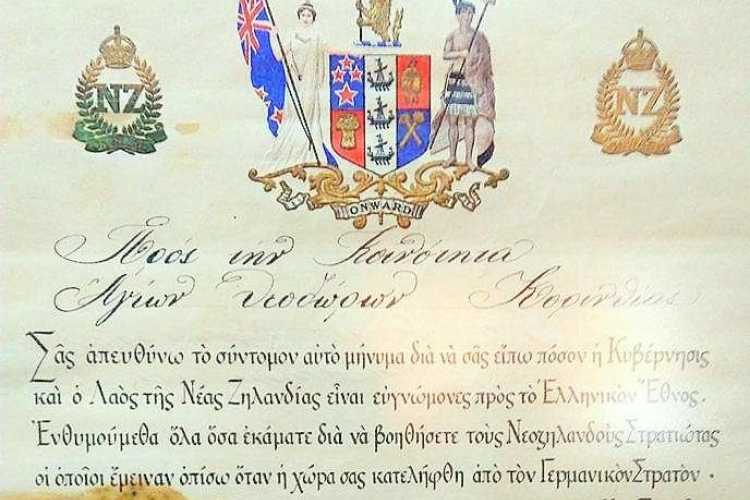 NZ NZ
ONWARD
Πρὸς τὴν Κοινότητα
Ἁγίων Θεοδώρων Κορινθίας
Σᾶς ἀπευθύνω τὸ σύντομον αὐτὸ μήνυμα διὰ νὰ σᾶς εἴπω πόσον ἡ Κυβέρνησις
καὶ ὁ Λαὸς τῆς Νέας Ζηλανδίας εἶναι εὐγνώμονες πρὸς τὸ Ἑλληνικὸν Ἔθνος.
Ἐνθυμούμεθα ὅλα ὅσα ἐκάματε διὰ νὰ βοηθήσετε τοὺς Νεοζηλανδοὺς Στρατιώτας
οἱ ὁποῖοι ἔμειναν ὀπίσω ὅταν ἡ χώρα σας κατελήφθη ἀπὸ τὸν Γερμανικὸν Στρατὸν.